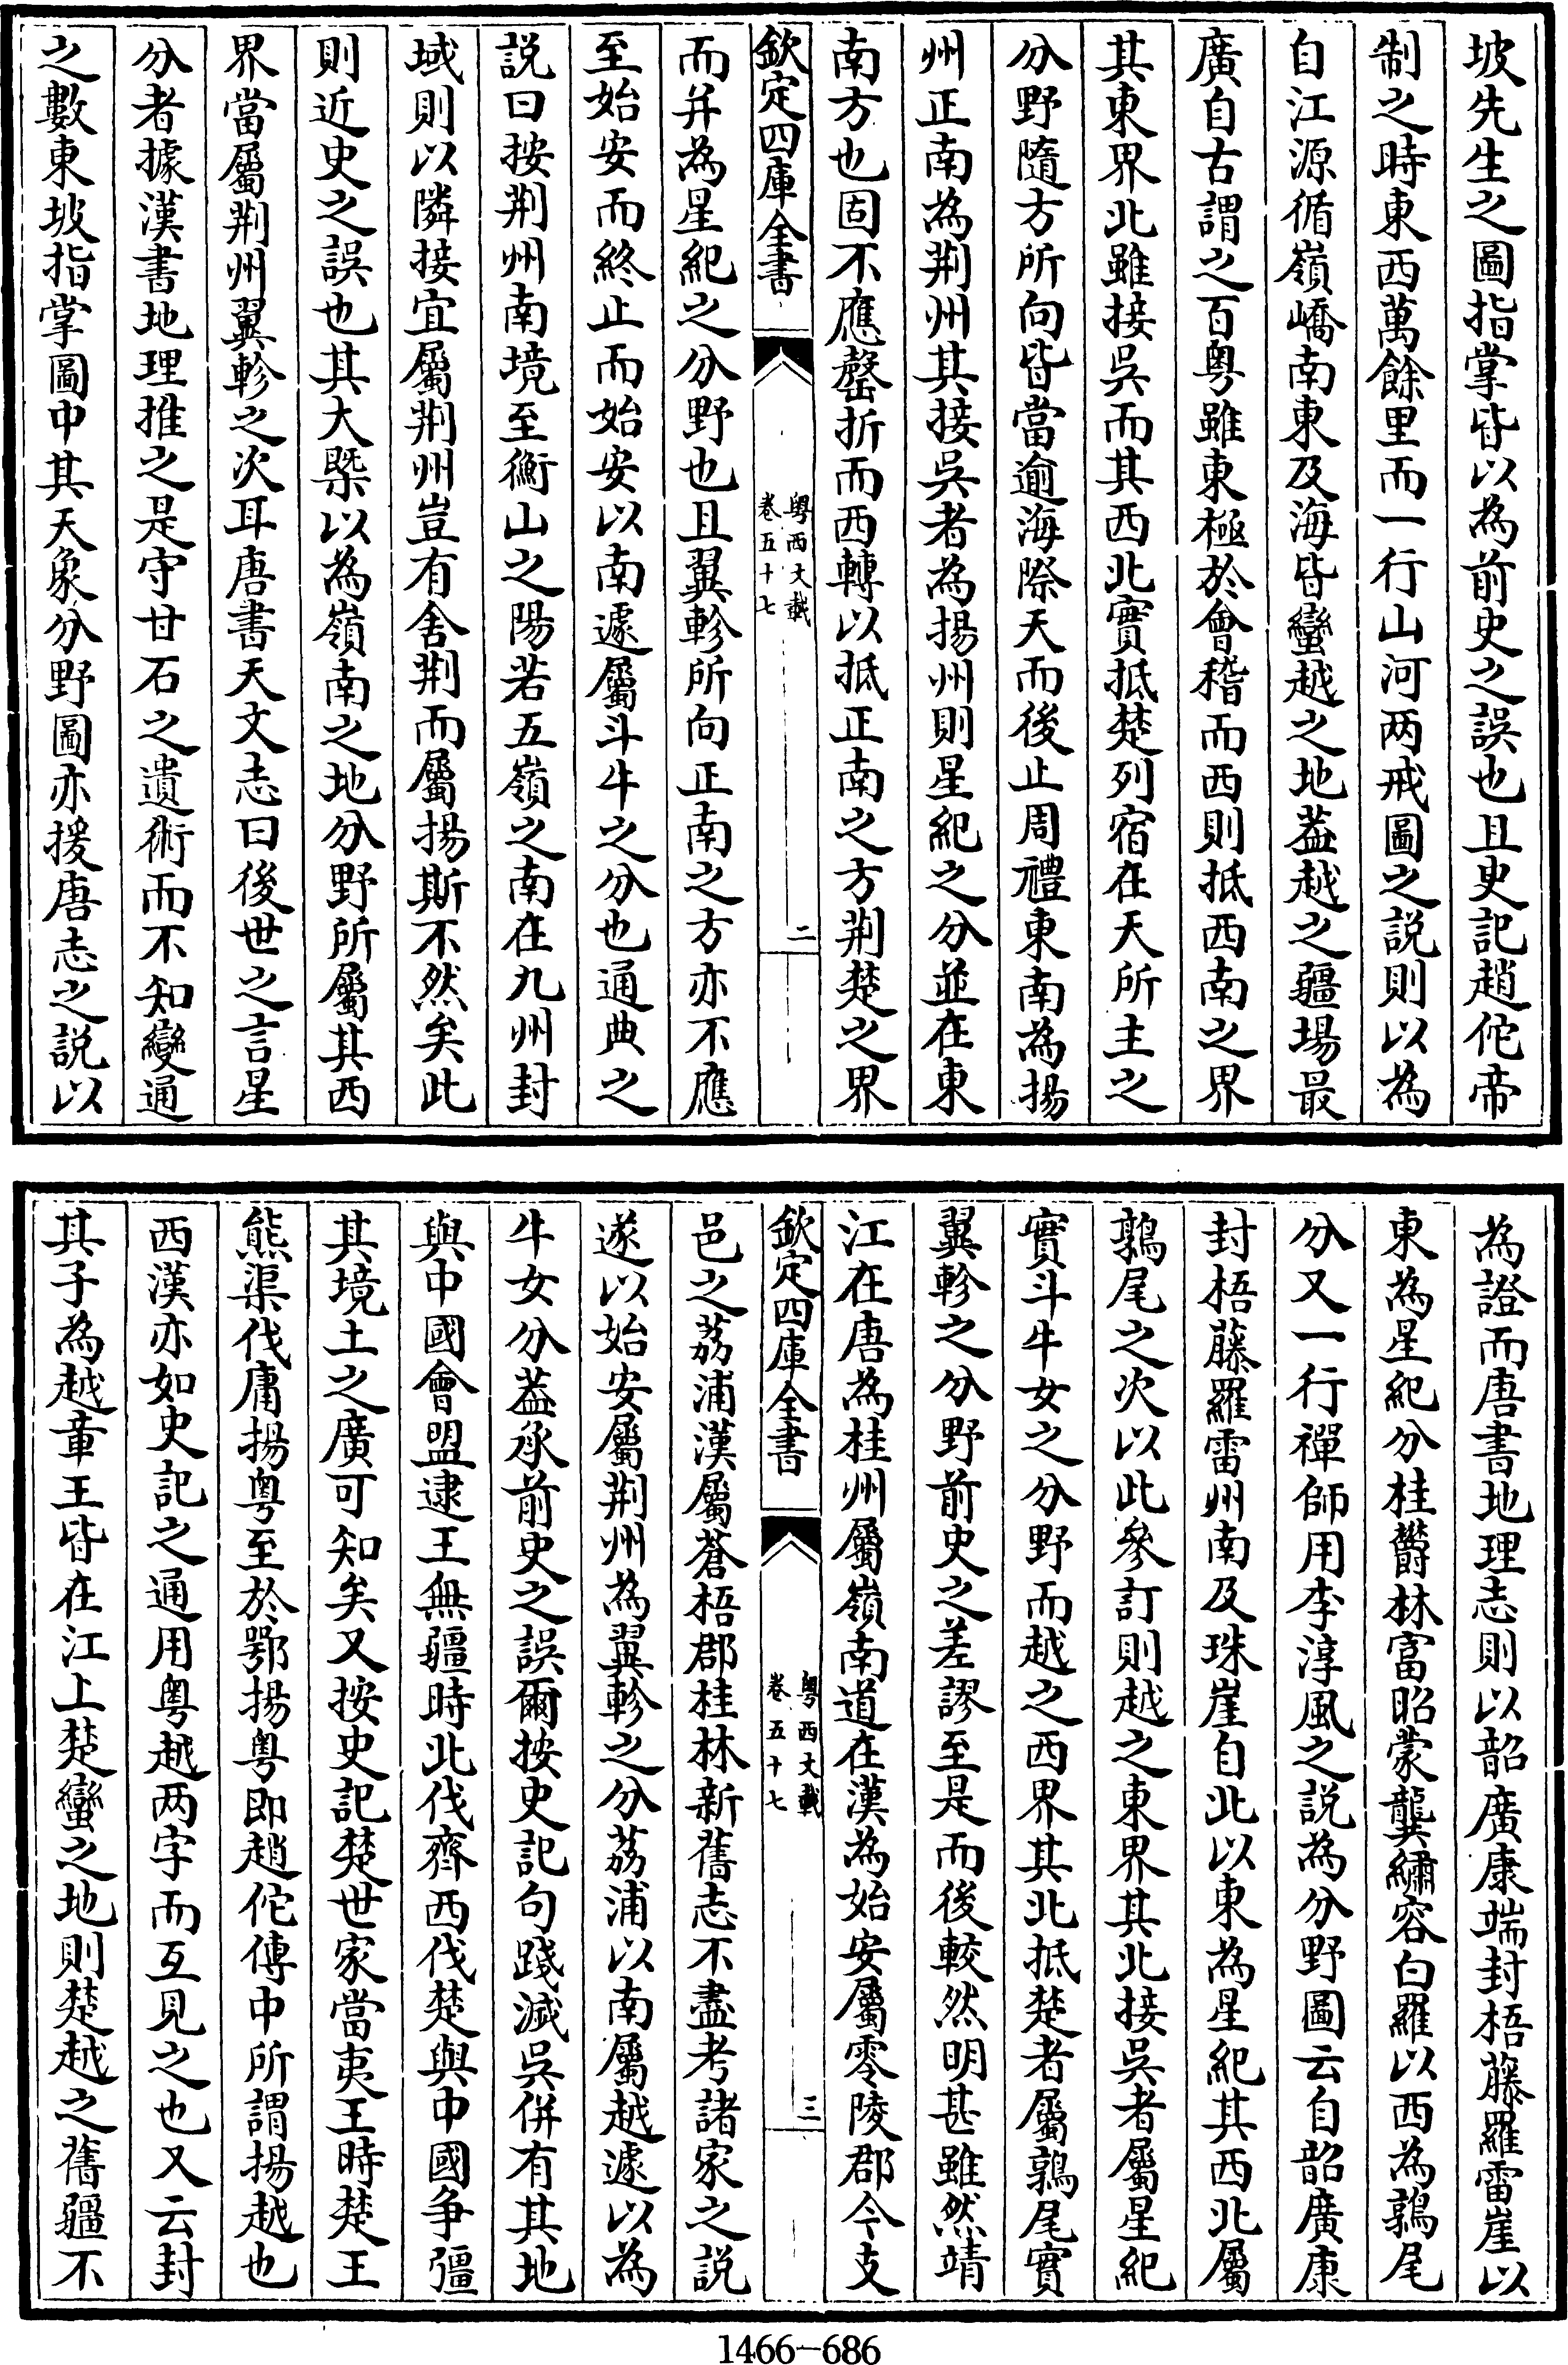 坡先生之圖指掌皆以為前史之誤也且史記趙佗帝
制之時東西萬餘里而一行山河两戒圖之説則以為
自江源循嶺嶠南東及海皆蠻越之地葢越之疆場最
廣自古謂之百粤雖東極於會稽而西則抵西南之界
其東界北雖接吳而其西北實抵楚列宿在天所主之
分野隨方所向皆當逾海際天而後止周禮東南為揚
州正南為荆州其接吳者為揚州則星紀之分並在東
南方也固不應罄折而西轉以抵正南之方荆楚之界
欽定四庫全書
粤西文載
卷五十七
二
而并為星紀之分野也且翼軫所向正南之方亦不應
至始安而終止而始安以南遽屬斗牛之分也通典之
説曰按荆州南境至衡山之陽若五嶺之南在九州封
域則以隣接宜屬荆州豈有舍荆而屬揚斯不然矣此
則近史之誤也其大槩以為嶺南之地分野所屬其西
界當屬荆州翼軫之次耳唐書天文志曰後世之言星
分者據漢書地理推之是守甘石之遺術而不知變通
之數東坡指掌圖中其天象分野圖亦援唐志之説以
為證而唐書地理志則以韶廣康端封梧藤羅雷崖以
東為星紀分桂鬱林富昭蒙龔繡容白羅以西為鶉尾
分又一行禪師用李淳風之説為分野圖云自韶廣康
封梧藤羅雷州南及珠崖自此以東為星紀其西北屬
鶉尾之次以此參訂則越之東界其北接吳者屬星紀
實斗牛女之分野而越之西界其北抵楚者屬鶉尾實
翼軫之分野前史之差謬至是而後較然明甚雖然靖
江在唐為桂州屬嶺南道在漢為始安屬零陵郡今支
欽定四庫全書
粤西文載
卷五十七
三
邑之荔浦漢屬蒼梧郡桂林新舊志不盡考諸家之説
遂以始安屬荆州為翼軫之分荔浦以南屬越遽以為
牛女分葢承前史之誤爾按史記句踐滅吳併有其地
與中國會盟逮王無疆時北伐齊西伐楚與中國争彊
其境土之廣可知矣又按史記楚世家當夷王時楚王
熊渠伐庸揚粤至於鄂揚粤即趙佗傳中所謂揚越也
西漢亦如史記之通用粤越两字而互見之也又云封
其子為越章王皆在江上楚蠻之地則楚越之舊疆不
1466-686